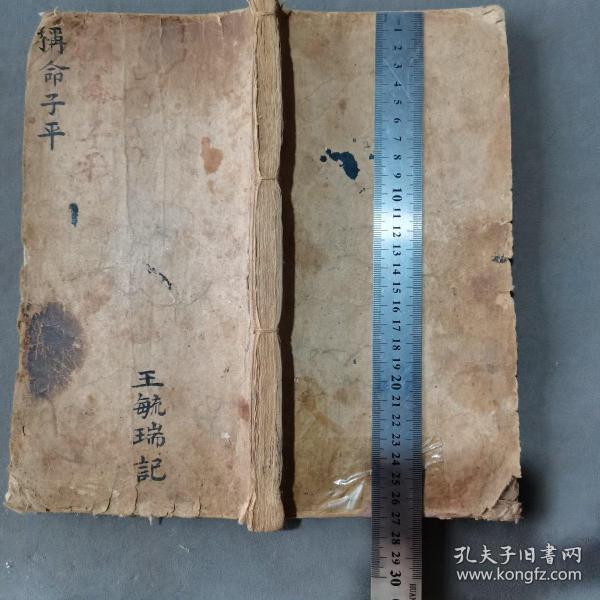 稱命子平
王毓瑞記
1
2
3
4
5
6
7
8
9
10
11
12
13
14
15
16
17
18
19
20
21
22
23
24
25
26
27
28
29
30
孔夫子旧书网
www.kongfz.com